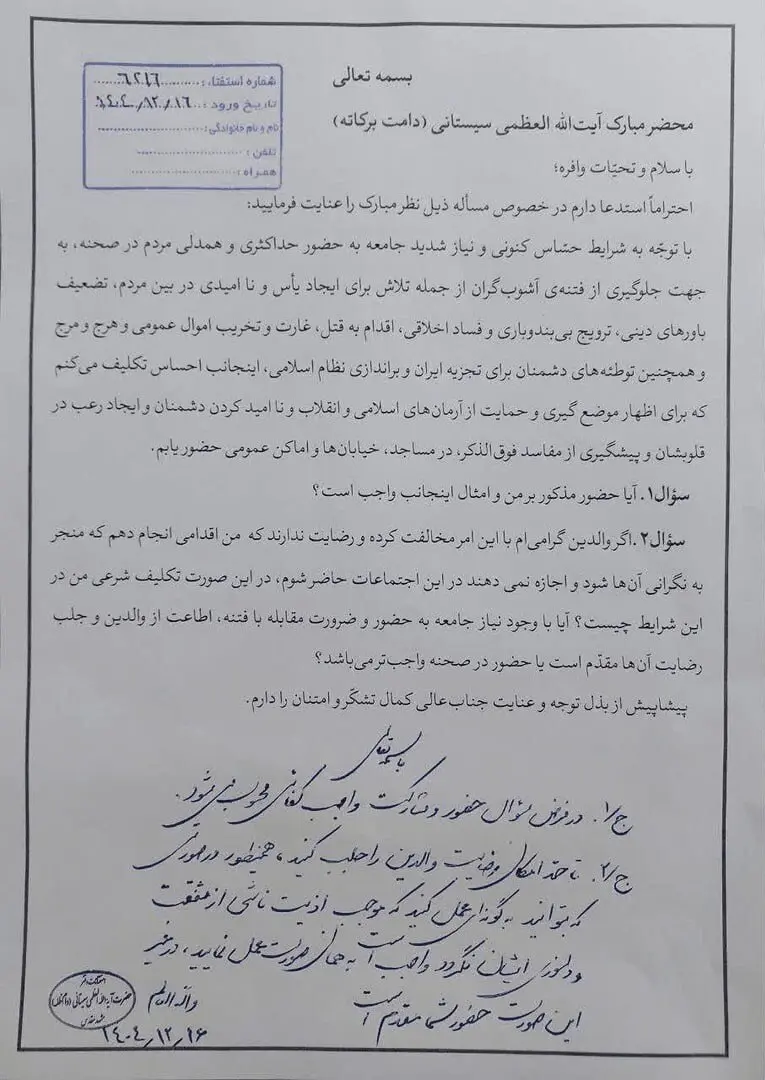 بسمه تعالی
شماره استفتاء: ۶۲۱۶
تاریخ ورود: ۱۴۰۴/۱۲/۱۶
نام و نام خانوادگی:
تلفن:
همراه:
محضر مبارک آیت‌الله العظمی سیستانی (دامت برکاته)
با سلام و تحیّات وافره؛
احتراماً استدعا دارم در خصوص مسأله ذیل نظر مبارک را عنایت فرمایید:
با توجّه به شرایط حسّاس کنونی و نیاز شدید جامعه به حضور حداکثری و همدلی مردم در صحنه، به
جهت جلوگیری از فتنه‌ی آشوب‌گران از جمله تلاش برای ایجاد یأس و نا امیدی در بین مردم، تضعیف
باورهای دینی، ترویج بی‌بندوباری و فساد اخلاقی، اقدام به قتل، غارت و تخریب اموال عمومی و هرج و مرج
و همچنین توطئه‌های دشمنان برای تجزیه ایران و براندازی نظام اسلامی، اینجانب احساس تکلیف می‌کنم
که برای اظهار موضع گیری و حمایت از آرمان‌های اسلامی و انقلاب و نا امید کردن دشمنان و ایجاد رعب در
قلوبشان و پیشگیری از مفاسد فوق‌الذکر، در مساجد، خیابان‌ها و اماکن عمومی حضور یابم.
سؤال۱. آیا حضور مذکور بر من و امثال اینجانب واجب است؟
سؤال۲. اگر والدین گرامی‌ام با این امر مخالفت کرده و رضایت ندارند که من اقدامی انجام دهم که منجر
به نگرانی آن‌ها شود و اجازه نمی دهند در این اجتماعات حاضر شوم، در این صورت تکلیف شرعی من در
این شرایط چیست؟ آیا با وجود نیاز جامعه به حضور و ضرورت مقابله با فتنه، اطاعت از والدین و جلب
رضایت آن‌ها مقدّم است یا حضور در صحنه واجب‌تر می‌باشد؟
پیشاپیش از بذل توجه و عنایت جناب‌عالی کمال تشکّر و امتنان را دارم.
باسمه تعالی
ج/۱. در فرض سؤال حضور و مشارکت واجب کفائی محسوب می شود.
ج/۲. تا حدّ امکان رضایت والدین را جلب کنید، همینطور در صورتی
که بتوانید به گونه‌ای عمل کنید که موجب اذیت ناشی از شفقت
و دلسوزی ایشان نگردد واجب است به همان صورت عمل نمایید، در غیر
این صورت حضور شما مقدم است
والله العالم
حضرت آیة الله العظمی سیستانی
مشهد مقدس
۱۴۰۴/۱۲/۱۶